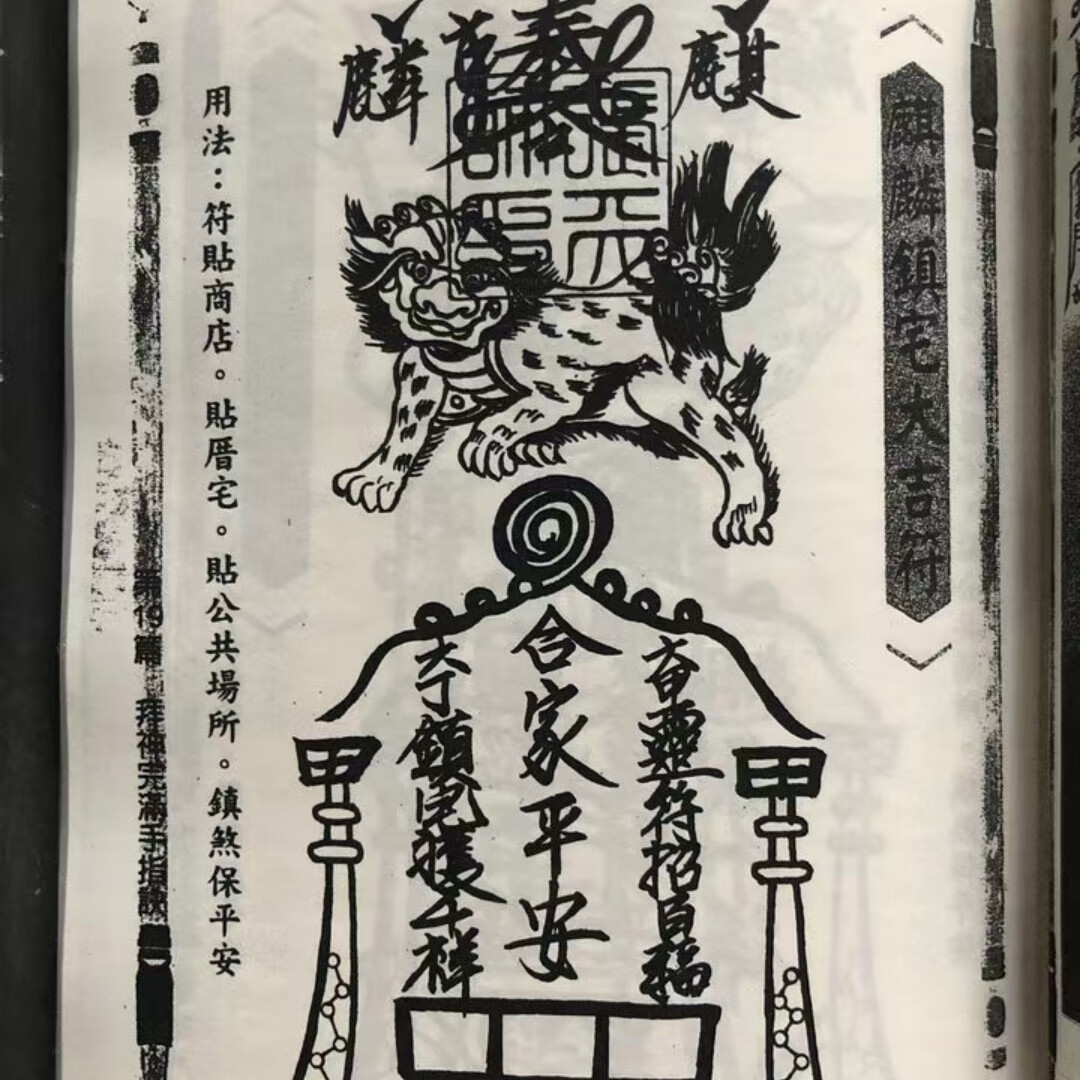 麒麟鎮宅大吉符
麒
奉
麟
靈符招百福
合家平安
鎮宅獲千祥
用法：符貼商店。貼厝宅。貼公共場所。鎮煞保平安
拜神完滿手指訣